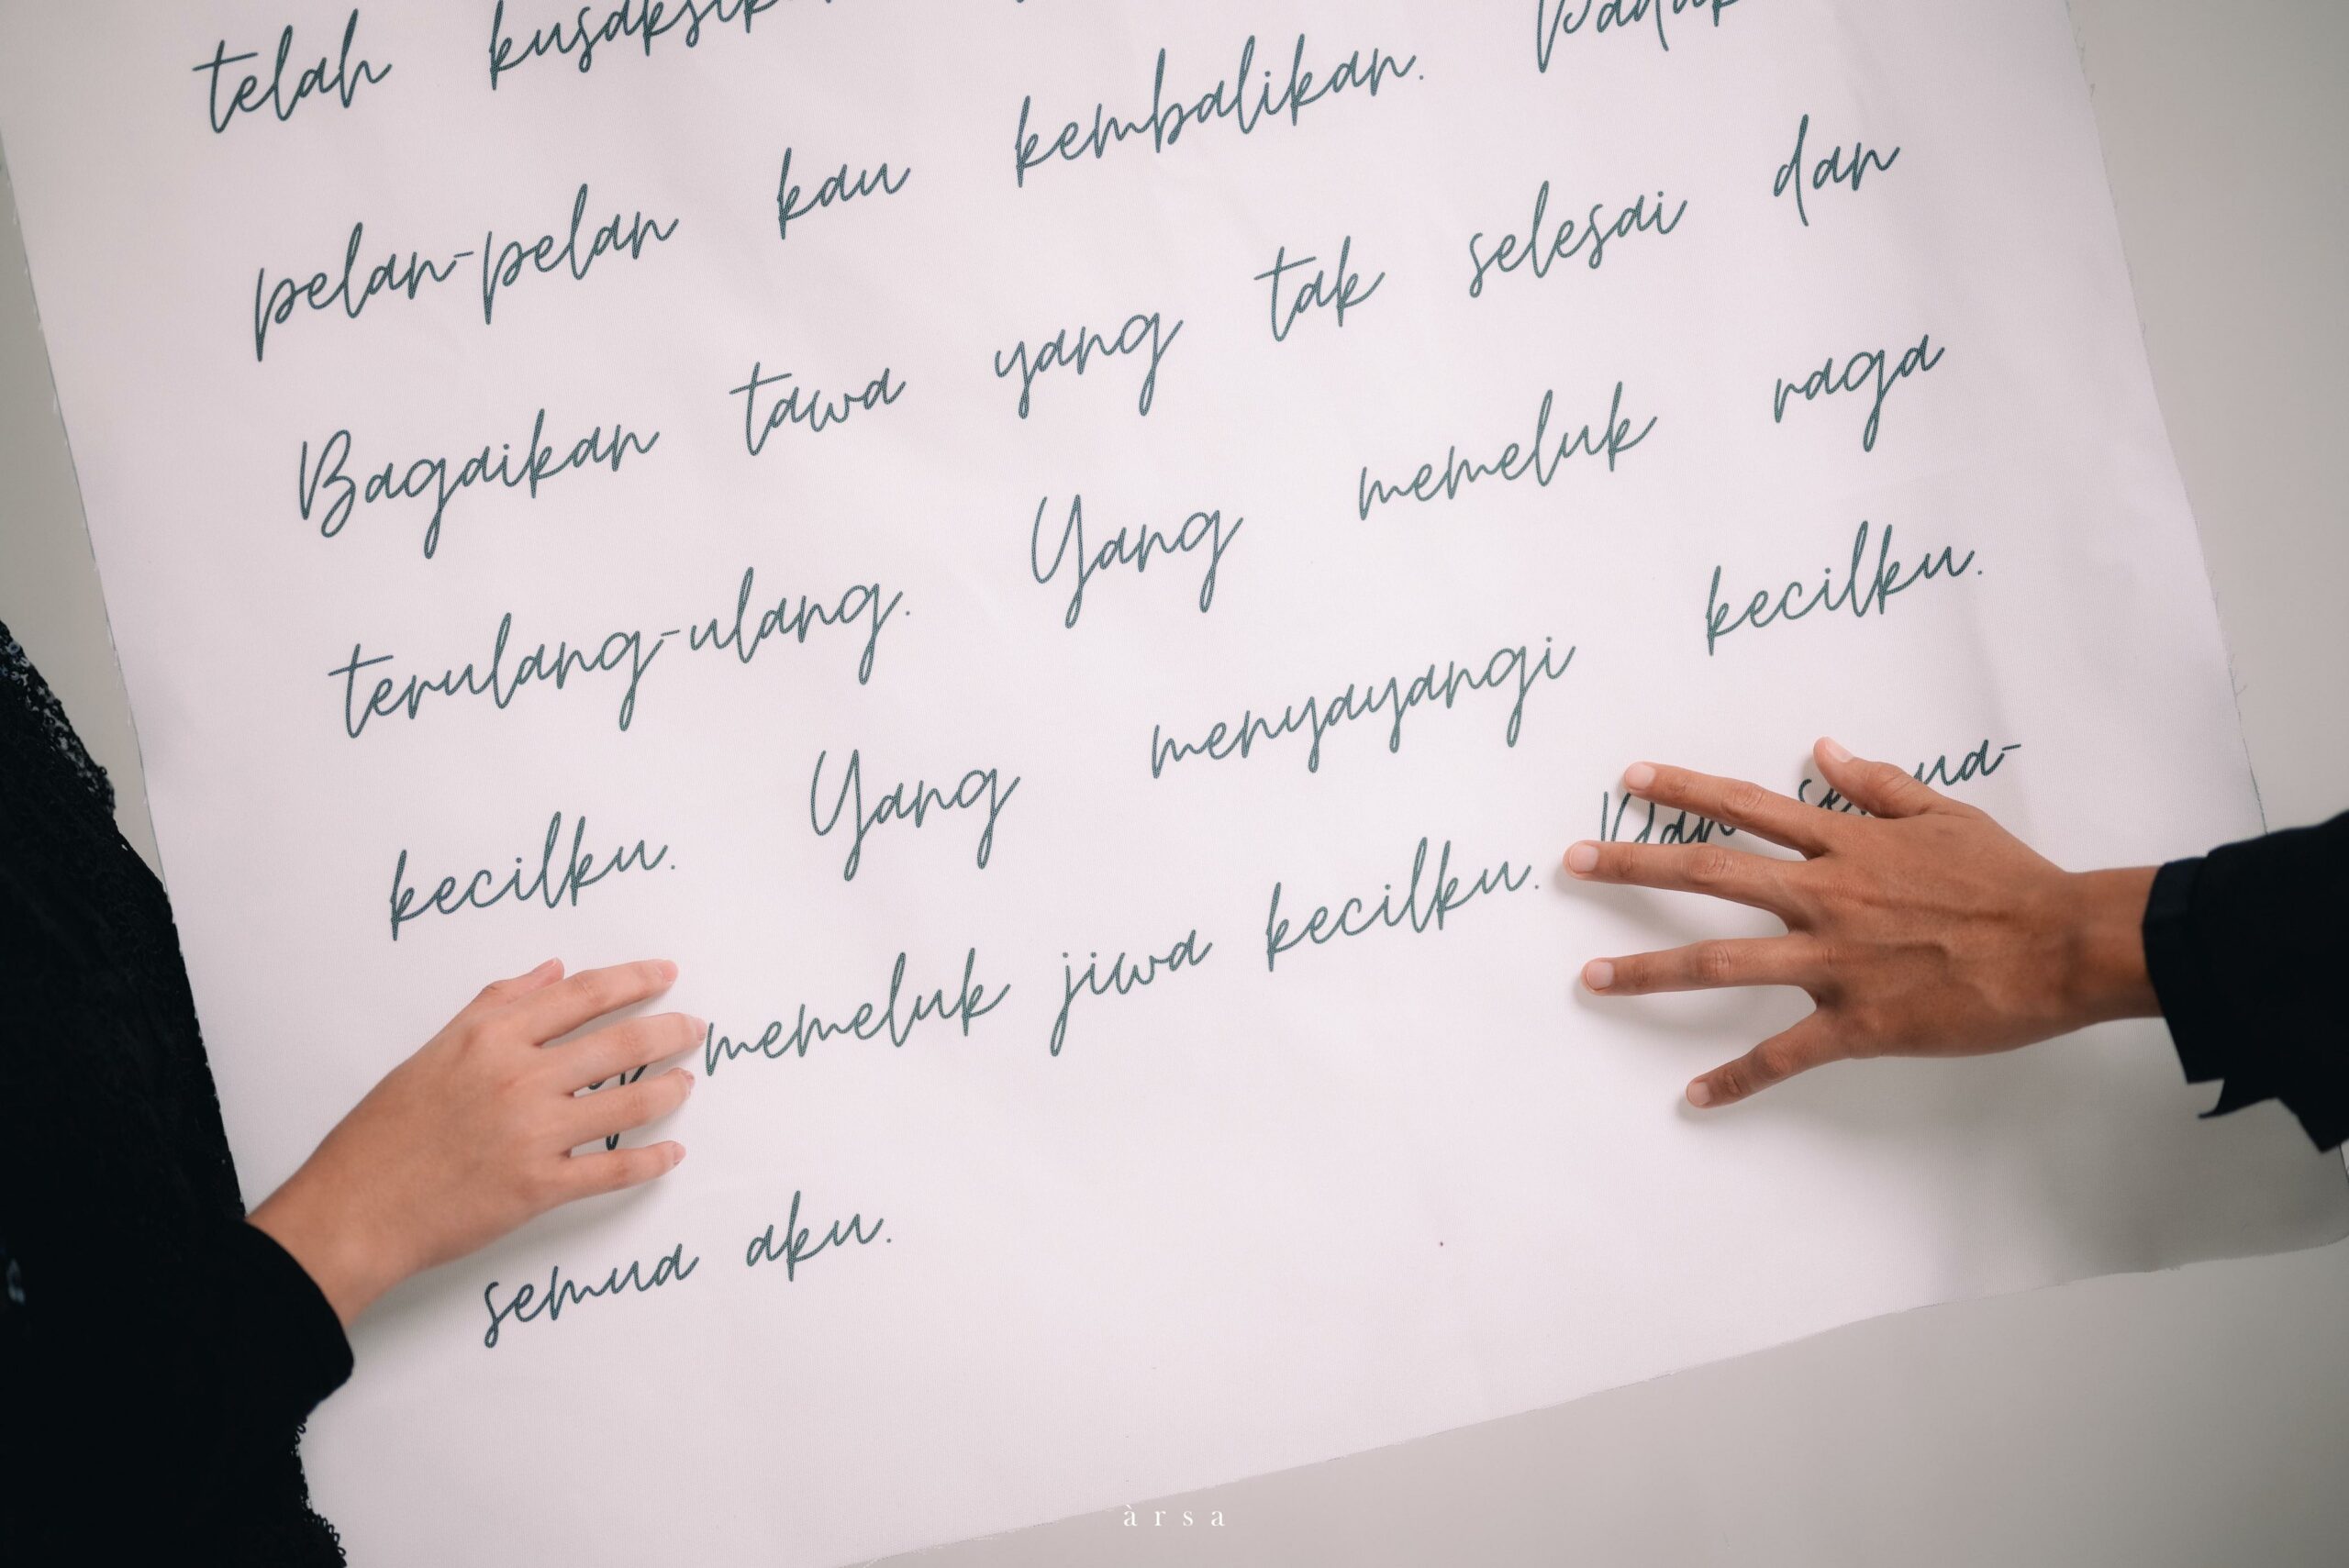 telah
pelan-pelan kau kembalikan.
Bagaikan tawa yang tak selesai dan
terulang-ulang. Yang memeluk raga
kecilku. Yang menyayangi kecilku.
memeluk jiwa kecilku. Dan semua-
semua aku.
àrsa